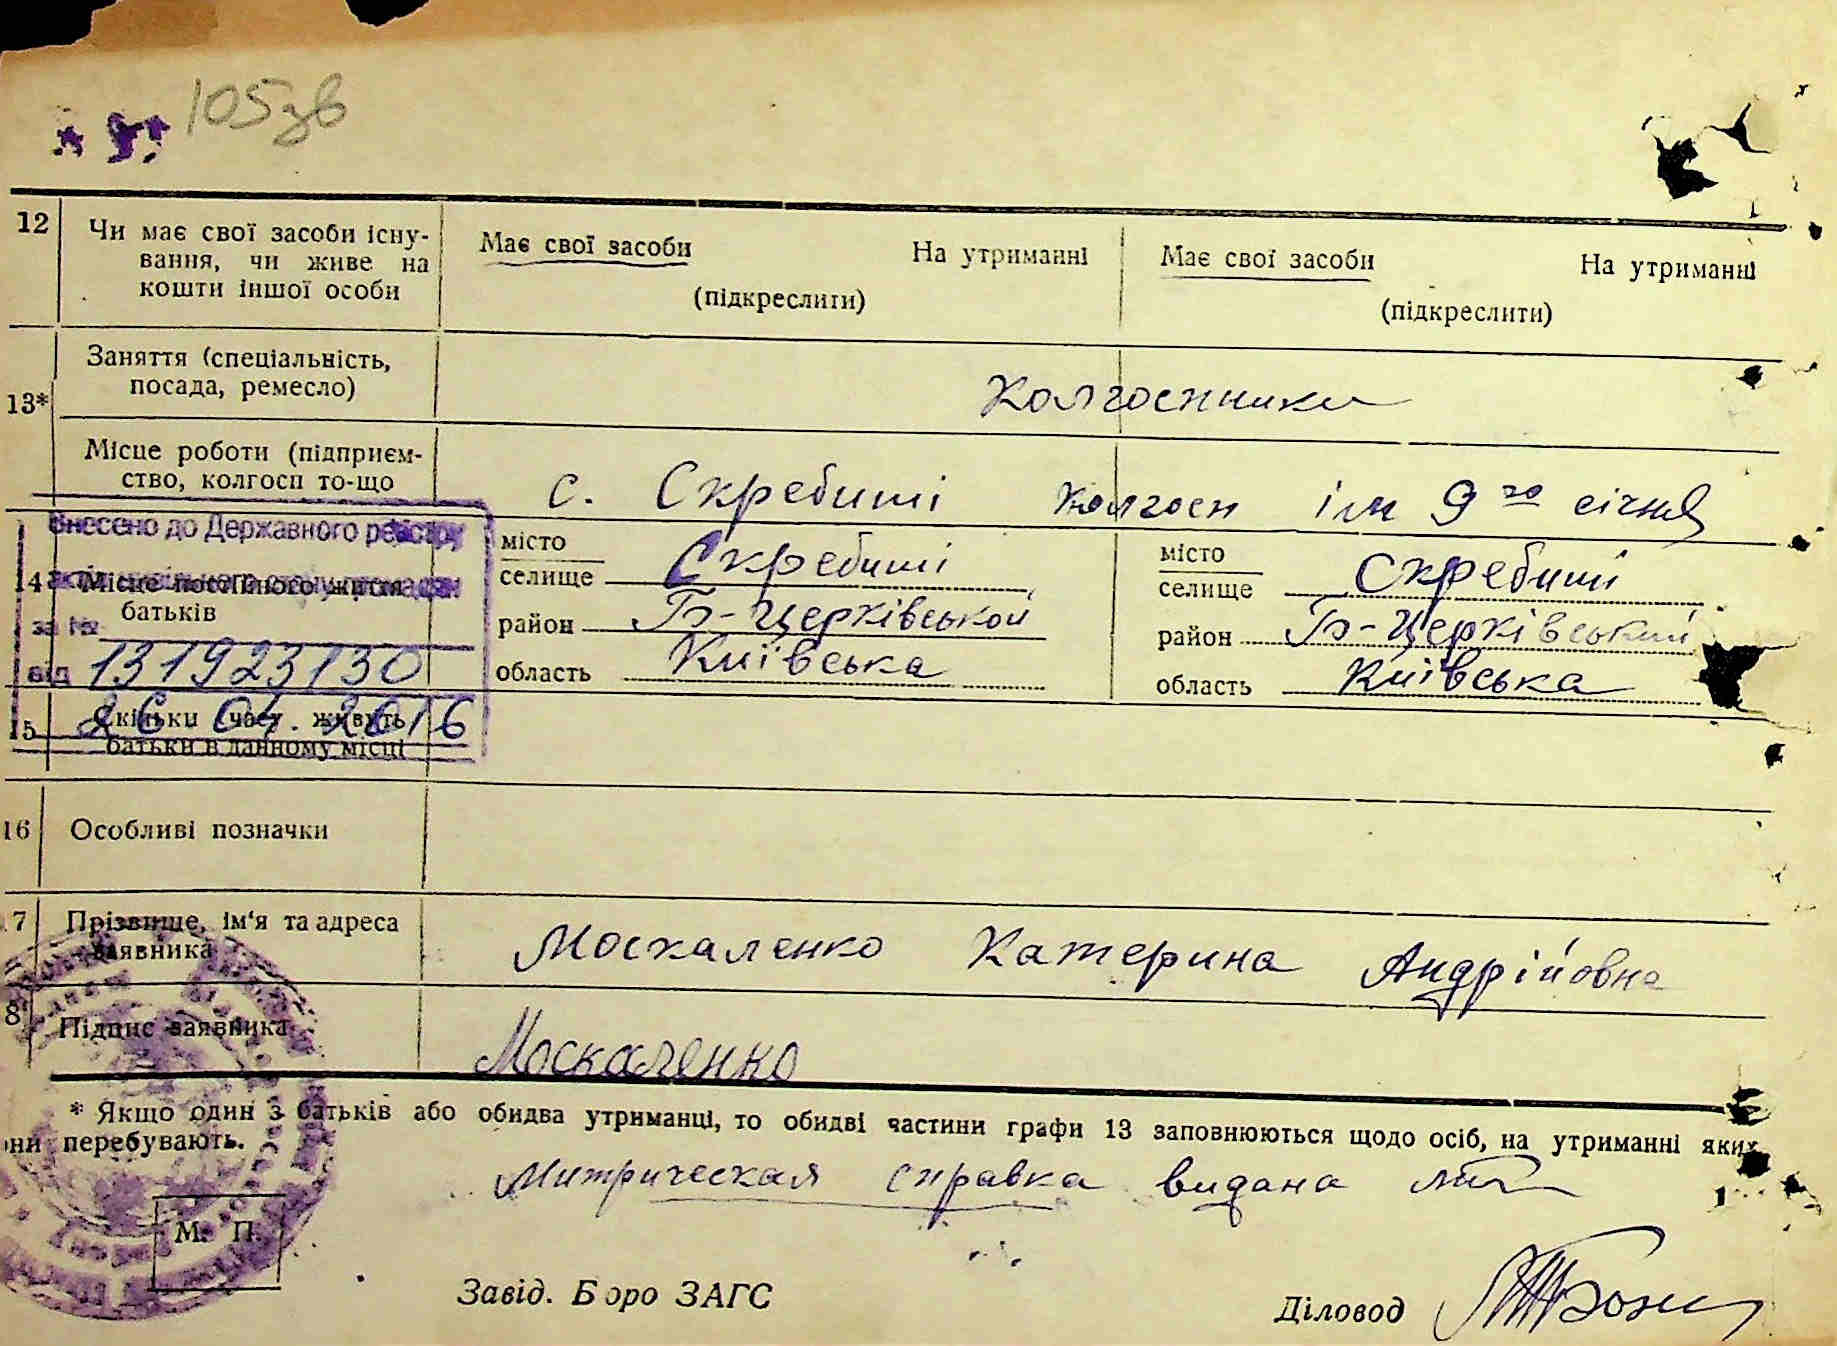 105зв
12 Чи має свої засоби існу- Має свої засоби На утриманні Має свої засоби На утриманні
вання, чи живе на
кошти іншої особи (підкреслити) (підкреслити)
Заняття (спеціальність,
посада, ремесло) Колгоспники
13*
Місце роботи (підприєм-
ство, колгосп то-що с. Скребиші колгосп ім 9го січня
Внесено до Державного реєстру
14 Місце постійного життя місто Скребиші місто Скребиші
батьків селище селище
за № район Б-Церківської район Б-Церківський
від 131923130 область Київська область Київська
26 04. 2016
15 Скільки часу живуть
батьки в данному місці
16 Особливі позначки
17 Прізвище, ім'я та адреса Москаленко Катерина Андрійовна
заявника
8 Підпис заявника Москаленко
* Якщо один з батьків або обидва утриманці, то обидві частини графи 13 заповнюються щодо осіб, на утриманні яких
они перебувають.
Митрическая справка видана
М. П.
Завід. Бюро ЗАГС Діловод